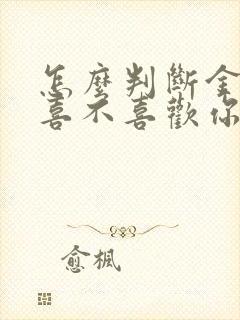 怎麼判斷金
喜不喜歡你
愈楓